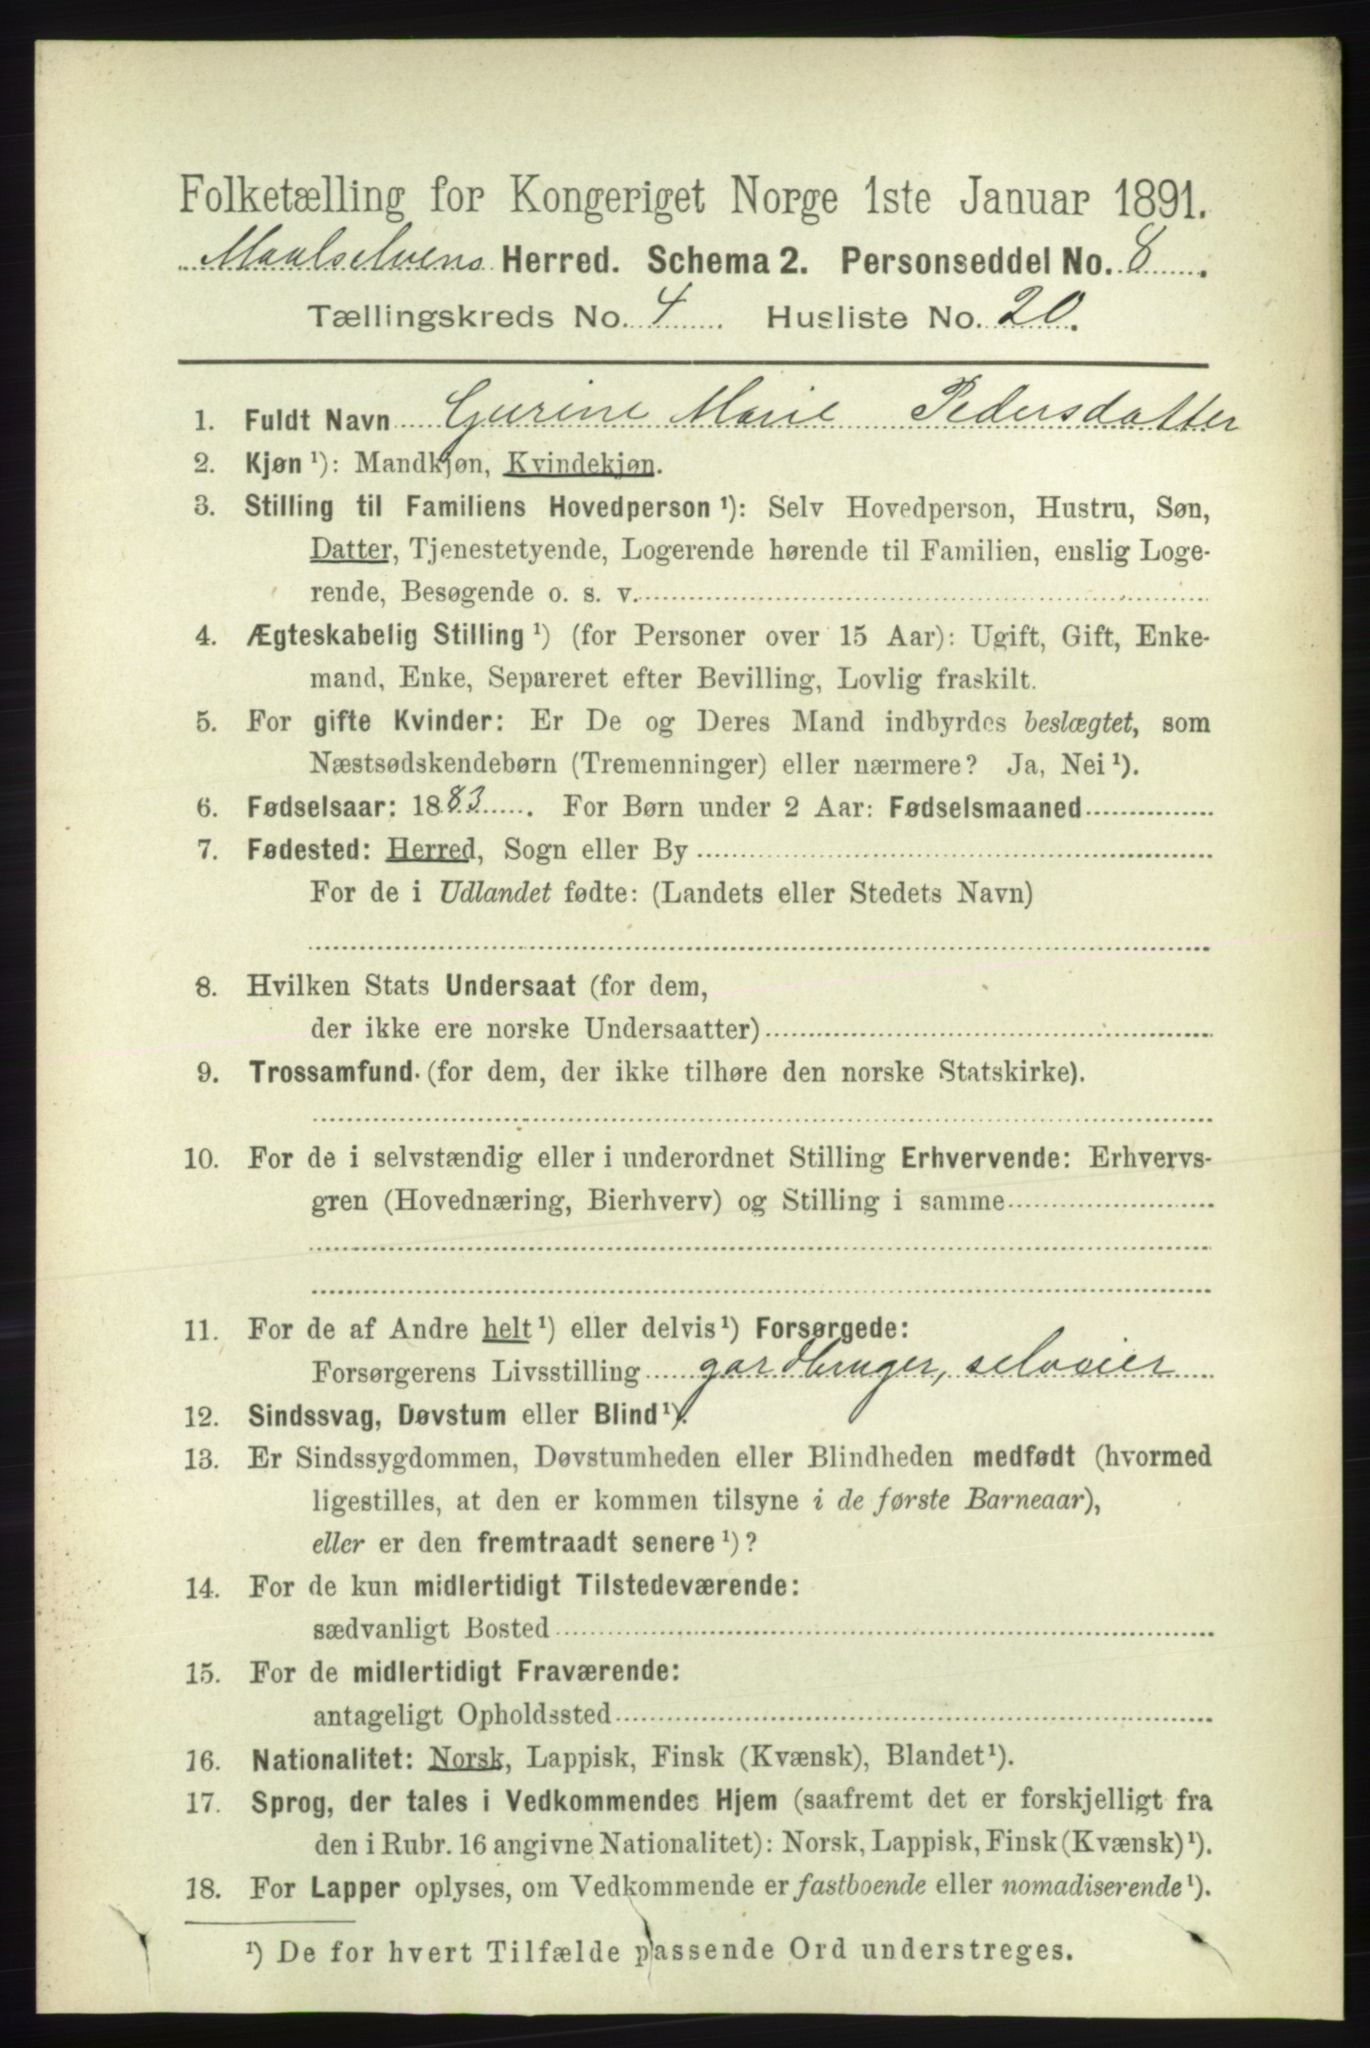 Folketælling for Kongeriget Norge 1ste Januar 1891.
Maalselvens Herred. Schema 2. Personseddel No. 8.
Tællingskreds No. 4. Husliste No. 20.
1. Fuldt Navn Gurine Marie Pedersdatter
2. Kjøn ¹): Mandkjøn, Kvindekjøn.
3. Stilling til Familiens Hovedperson ¹): Selv Hovedperson, Hustru, Søn,
Datter, Tjenestetyende, Logerende hørende til Familien, enslig Loge-
rende, Besøgende o. s. v.
4. Ægteskabelig Stilling ¹) (for Personer over 15 Aar): Ugift, Gift, Enke-
mand, Enke, Separeret efter Bevilling, Lovlig fraskilt.
5. For gifte Kvinder: Er De og Deres Mand indbyrdes beslægtet, som
Næstsødskendebørn (Tremenninger) eller nærmere? Ja, Nei ¹).
6. Fødselsaar: 1883. For Børn under 2 Aar: Fødselsmaaned
7. Fødested: Herred, Sogn eller By
For de i Udlandet fødte: (Landets eller Stedets Navn)
8. Hvilken Stats Undersaat (for dem,
der ikke ere norske Undersaatter)
9. Trossamfund. (for dem, der ikke tilhøre den norske Statskirke).
10. For de i selvstændig eller i underordnet Stilling Erhvervende: Erhvervs-
gren (Hovednæring, Bierhverv) og Stilling i samme
11. For de af Andre helt ¹) eller delvis ¹) Forsørgede:
Forsørgerens Livsstilling gardbruger, selveier
12. Sindssvag, Døvstum eller Blind ¹).
13. Er Sindssygdommen, Døvstumheden eller Blindheden medfødt (hvormed
ligestilles, at den er kommen tilsyne i de første Barneaar),
eller er den fremtraadt senere ¹)?
14. For de kun midlertidigt Tilstedeværende:
sædvanligt Bosted
15. For de midlertidigt Fraværende:
antageligt Opholdssted
16. Nationalitet: Norsk, Lappisk, Finsk (Kvænsk), Blandet ¹).
17. Sprog, der tales i Vedkommendes Hjem (saafremt det er forskjelligt fra
den i Rubr. 16 angivne Nationalitet): Norsk, Lappisk, Finsk (Kvænsk) ¹).
18. For Lapper oplyses, om Vedkommende er fastboende eller nomadiserende ¹).
¹) De for hvert Tilfælde passende Ord understreges.